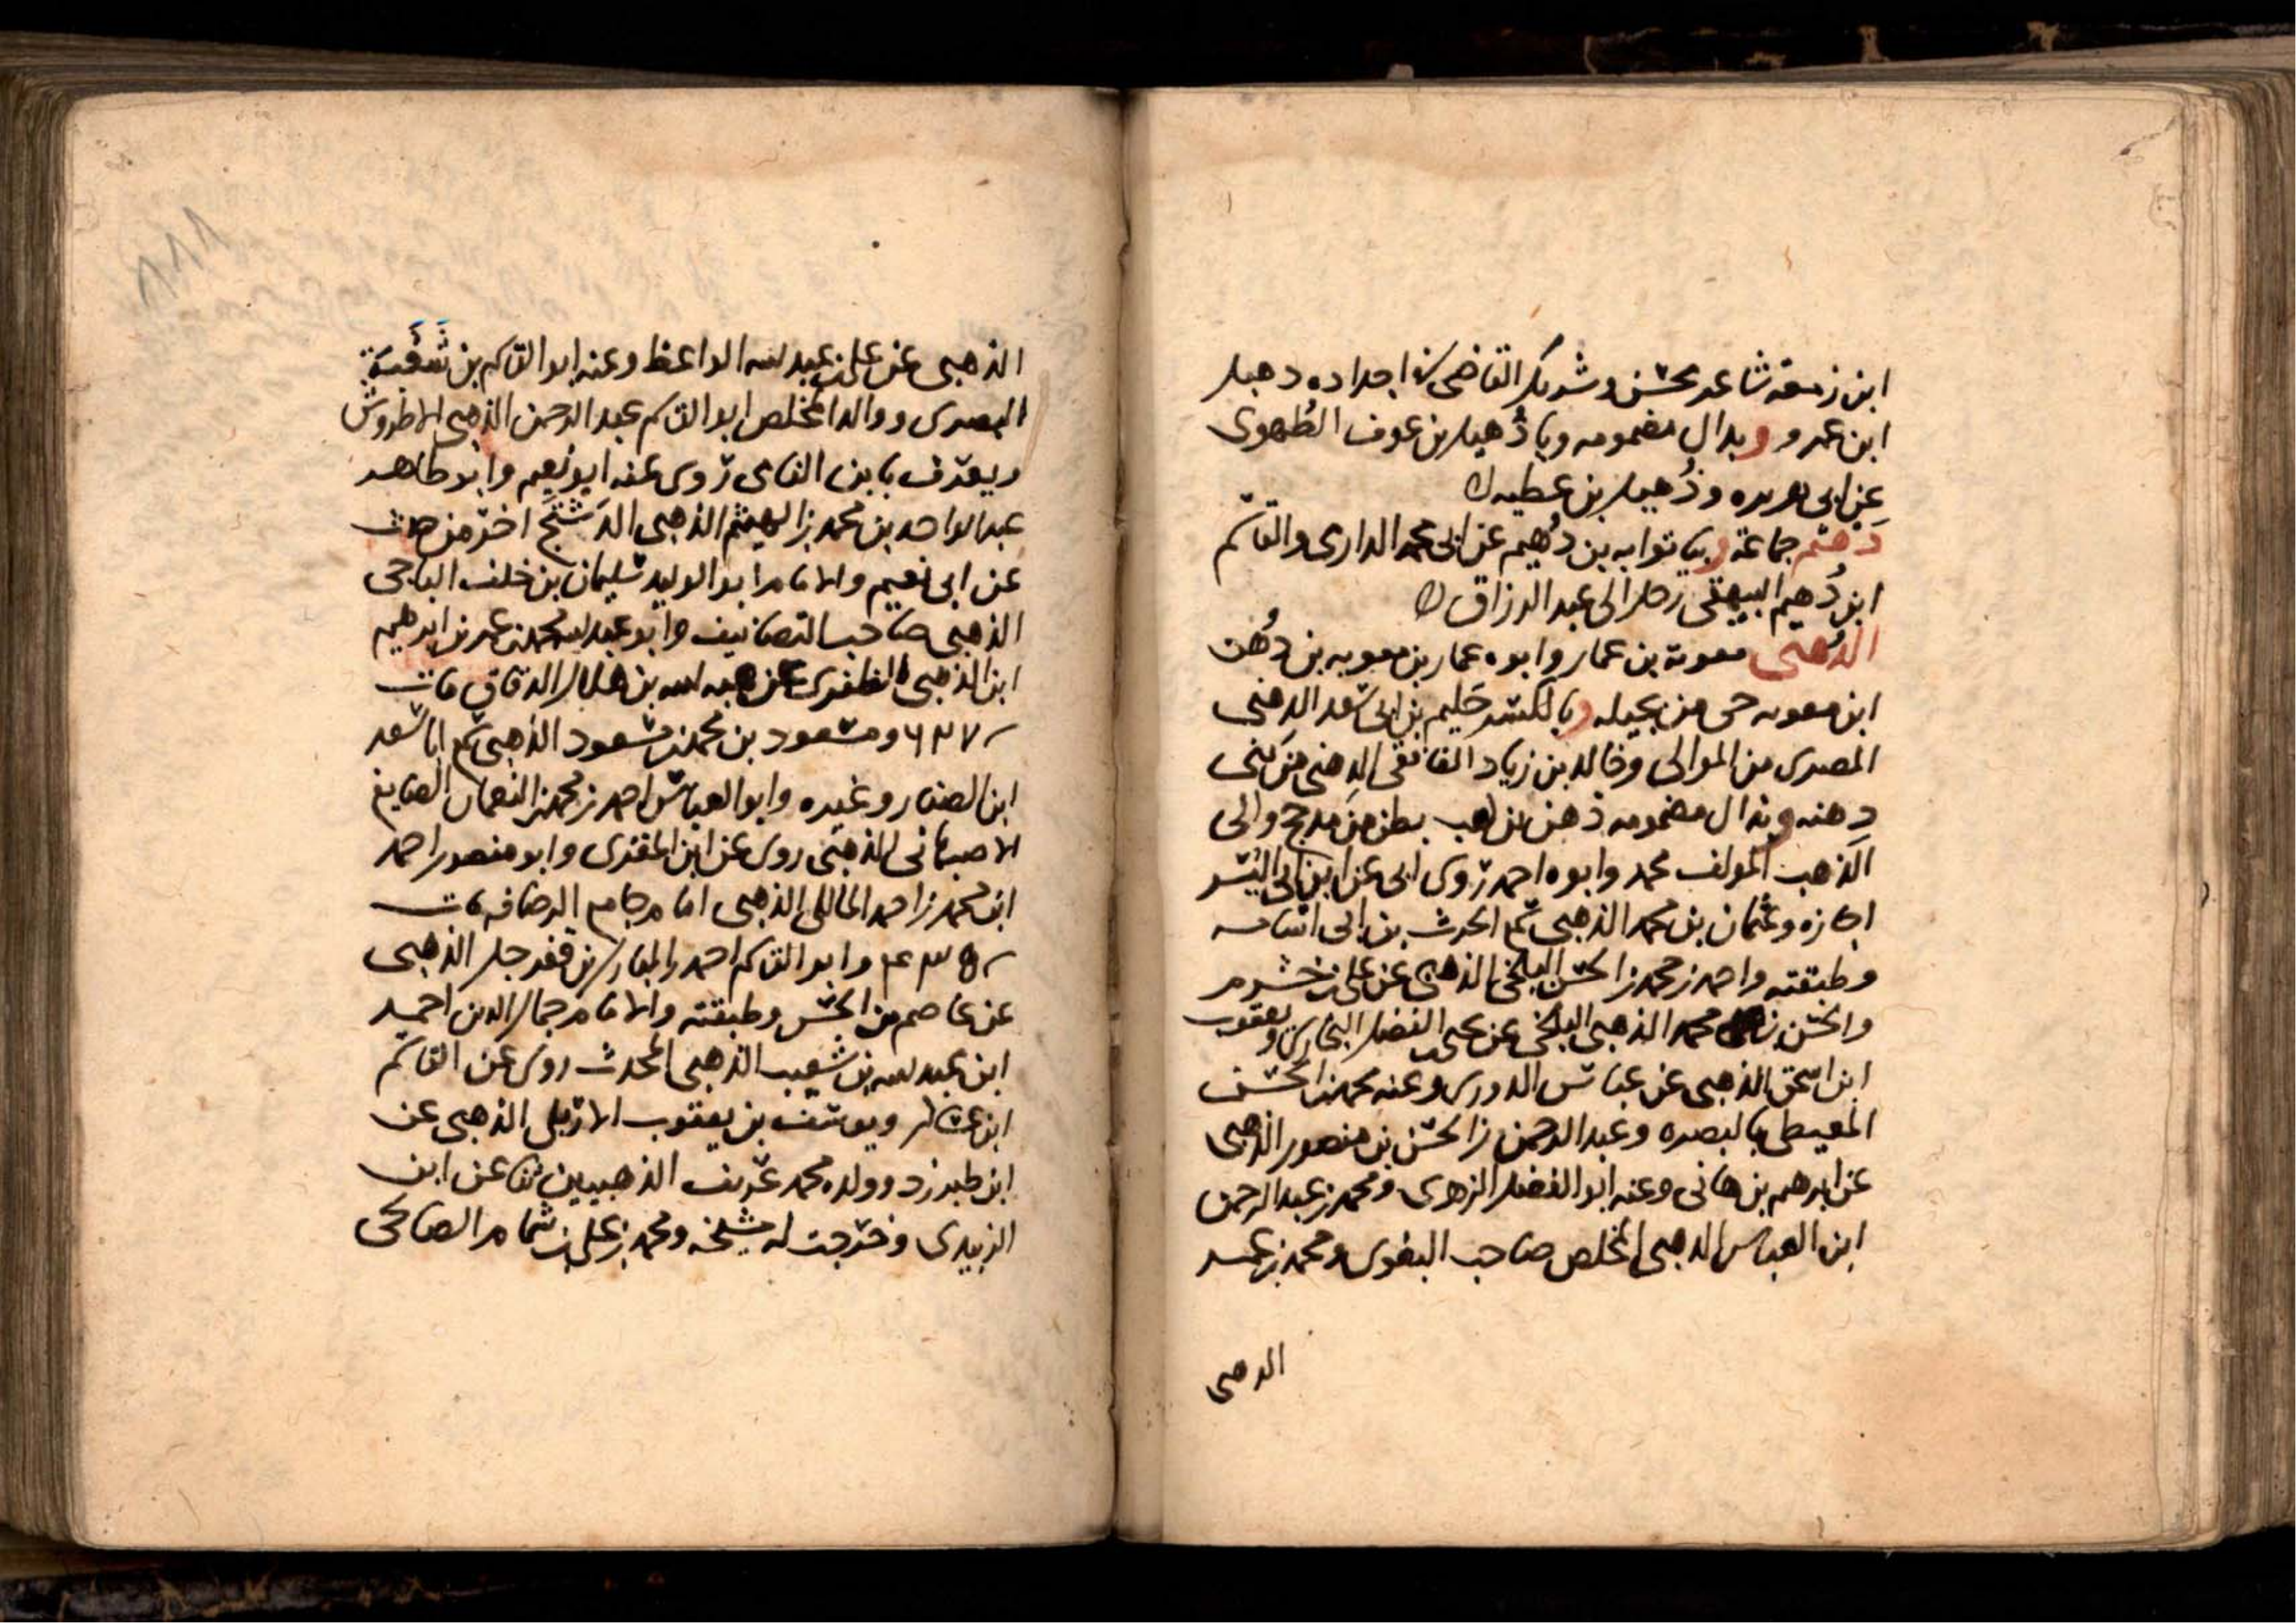 ابن زمعة شاعر محسن وشريك القاضي في اجداده دهبل
ابن عمرو وبذال مضمومه ويا ذهيل بن عوف الطُهوى
عن ابى هريره وذُهيل بن عطيه
دَهثم جماعة وبيا ثوابه بن دُهيم عن ابى محمد الدارى والقاسم
ابن دُهيم البيهقى رحل الى عبد الرزاق
الدُهنى معوية بن عمار وابوه عمار بن معويه بن دُهن
ابن معويه حى من بجيله وبالكسر حَليم بن ابى سعد الدهنى
المصرى من الموالى وخالد بن زياد الغافقى الدهنى من بنى
دهنه وبذال مضمومه ذهن بن كعب بطن من مذحج والى
الذهب المولف محمد وابوه احمد روى ابى عن ابن ابى اليسر
اجازه وعثمان بن محمد الذهبى سمع الحرث بن ابى اسامه
وطبقته واحمد بن محمد بن الحسن البلخى الذهبى عن على بن خشرم
والحسن بن محمد الذهبى البلخى عن يحيى بن الفضل البخارى ويعقوب
ابن اسحق الذهبى عن عباس الدورى وعنه محمد بن الحسن
المعيطى بالبصره وعبد الرحمن بن الحسن بن منصور الذهبى
عن ابرهيم بن هانى وعنه ابو الفضل الزهرى ومحمد بن عبد الرحمن
ابن العباس الذهبى المخلص صاحب البغوى ومحمد بن عمر
الدهبى
١١١
الذهبى عن على بن عبد الله الواعظ وعنه ابو القاسم بن
البصرى ووالد المخلص ابو القاسم عبد الرحمن الذهبى الاطروش
ويعرف بابن الفامى روى عنه ابو نُعيم وابو طاهر
عبد الواحد بن محمد بن الهيثم الذهبى الدَشتج اخر من حدث
عن ابى نعيم والامام ابو الوليد سليمان بن خلف الباجى
الذهبى صاحب التصانيف وابو عبد الله محمد بن عمر بن ابرهيم
ابن الذهبى الظفرى عن هبه الله بن هلال الدقاق مات
٦٣٧ ومسعود بن محمد بن مسعود الذهبى سمع ابا سعد
ابن الصفار وغيره وابو العباس احمد بن محمد بن النعمان الصايغ
الاصبهانى الذهبى روى عن ابن المقرى وابو منصور احمد
ابن محمد بن احمد المالكى الذهبى امام جامع الرصافه مات
٤٣٥ وابو القاسم احمد بن المبارك بن قفرجل الذهبى
عن عاصم بن الحسن وطبقته والامام جمال الدين احمد
ابن عبد الله بن شعيب الذهبى المحدث روى عن القاسم
ابن عساكر ويوسف بن يعقوب الاربلى الذهبى عن
ابن طبرزد وولده محمد عريف الذهبيين ثنا عن ابن
الزبيدى وخرجت له مشيخه ومحمد بن على بن شمام الصالحى